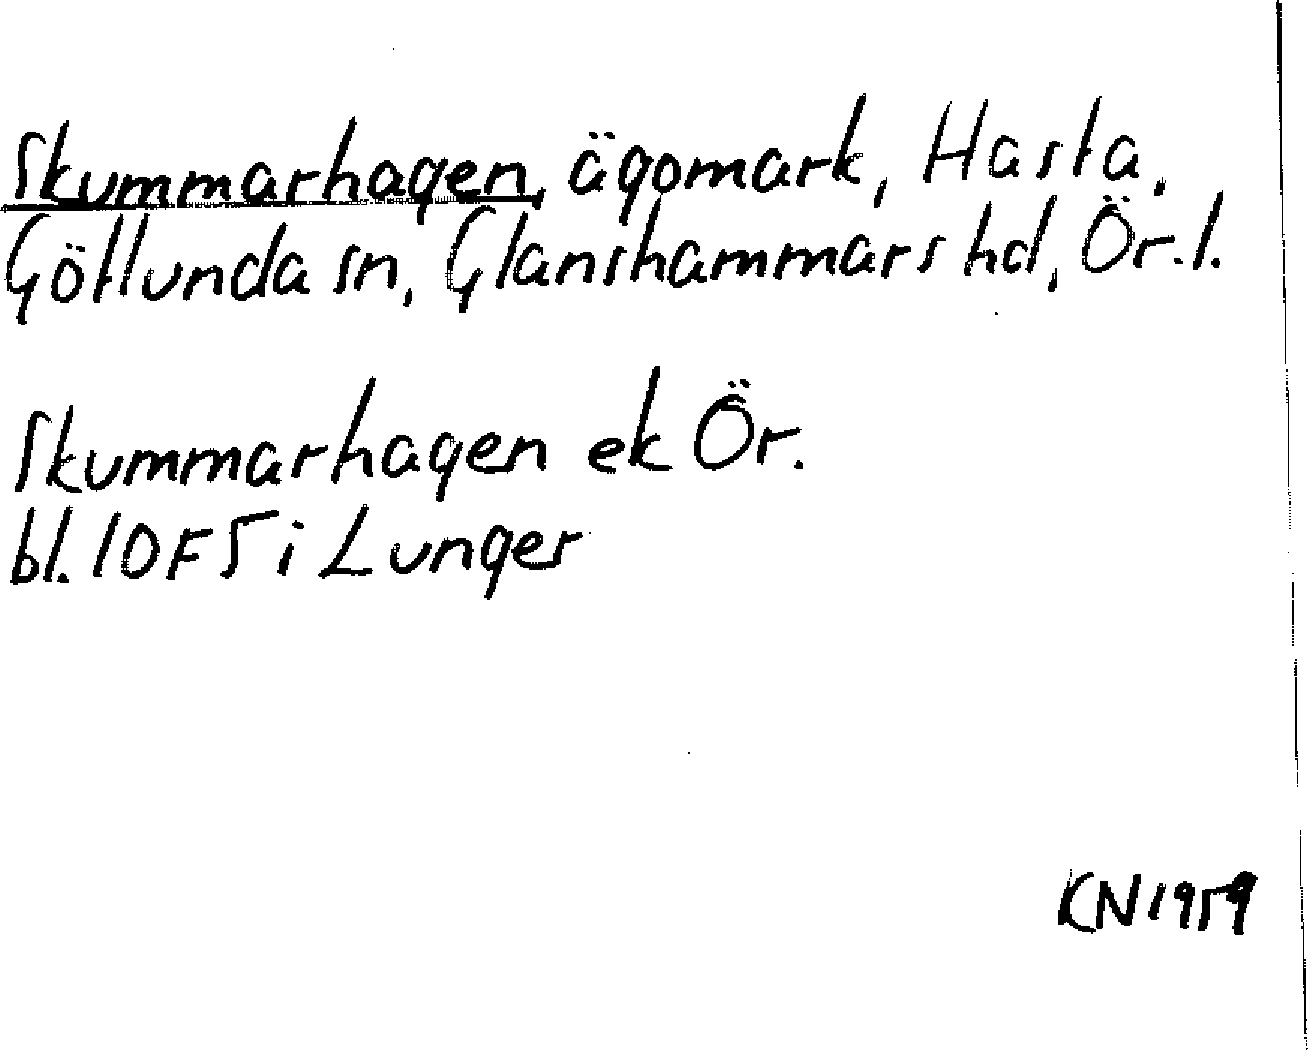 Skummarhagen, ägomark, Hasta.
Götlunda sn, Glanshammars hd, Ör.l.
Skummarhagen ek Ör.
bl. 10F5 i Lunger
KN 1959